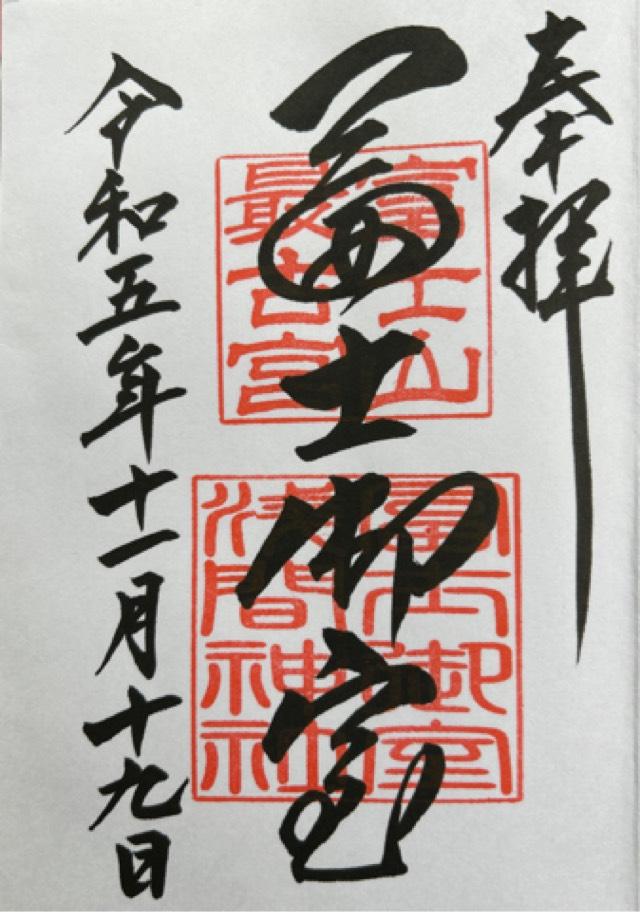 奉拝
富士山
最古宮
富士御室
富士御室
浅間神社
令和五年十一月十九日